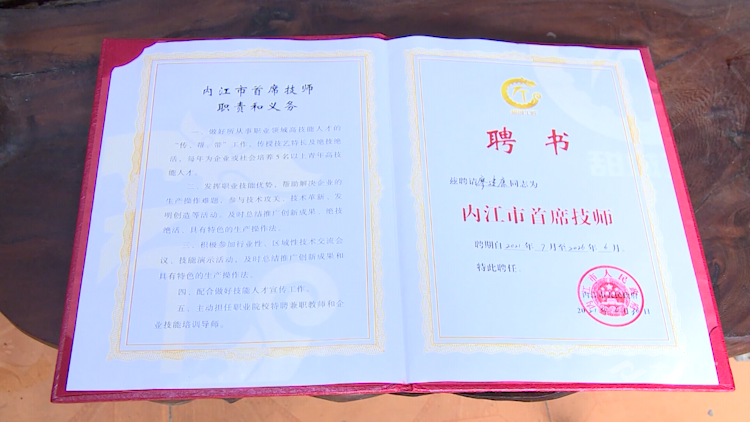 内江市首席技师
职责和义务
一、做好所从事职业领域高技能人才的
“传、帮、带”工作，传授技艺特长及绝技绝
活，每年为企业或社会培养5名以上青年高技
能人才。
二、发挥职业技能优势，帮助解决企业的
生产操作难题，参与技术攻关、技术革新、发
明创造等活动，及时总结推广创新成果、绝技
绝活、具有特色的生产操作法。
三、积极参加行业性、区域性技术交流会
议、技能演示活动，及时总结推广创新成果和
具有特色的生产操作法。
四、配合做好技能人才宣传工作。
五、主动担任职业院校特聘兼职教师和企
业技能培训导师。
聘书
兹聘请廖建康同志为
内江市首席技师
聘期自2021年7月至2026年6月。
特此聘任。
内江市人民政府